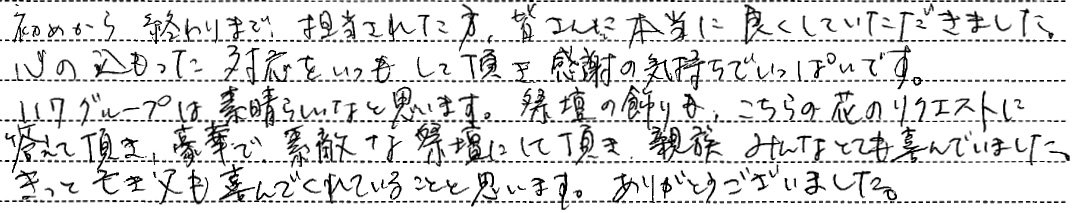 初めから終わりまで、担当された方、皆さんに本当に良くしていただきました。
心の込もった対応をいつもして頂き感謝の気持ちでいっぱいです。
117グループは素晴らしいなと思います。祭壇の飾りも、こちらの花のリクエストに
答えて頂き、豪華で、素敵な祭壇にして頂き、親族みんなとても喜んでいました。
きっと亡き父も喜んでくれていることと思います。ありがとうございました。